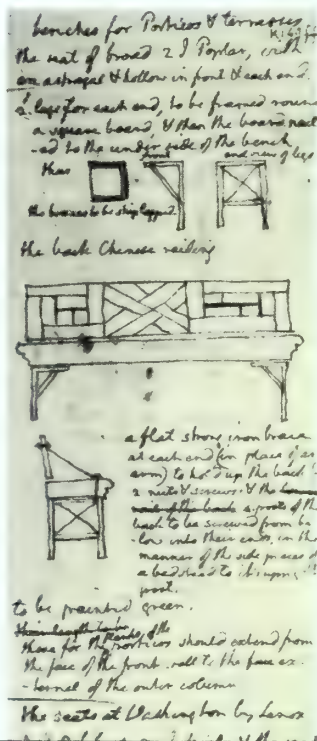 benches for Porticos & terrasses
the seat of broad 2 I Poplar, with
an astragal & hollow in front & each end.
2 legs for each end, to be framed round
a square board, & then the board nail
-ed to the under side of the bench
thus
front
end view of legs
the braces to be ship lapped.
the back Chinese railing
a flat strong iron brace
at each end (in place of an
arm) to hold up the back
2 nuts & screws. & the
posts of the
back to be screwed from be
-low into their ends, in the
manner of the side pieces of
a bedstead to it's upright
post.
to be painted green.
those for the Porticos should extend from
the face of the front wall to the face ex-
-ternal of the outer column
the seats at Washington by Lenox